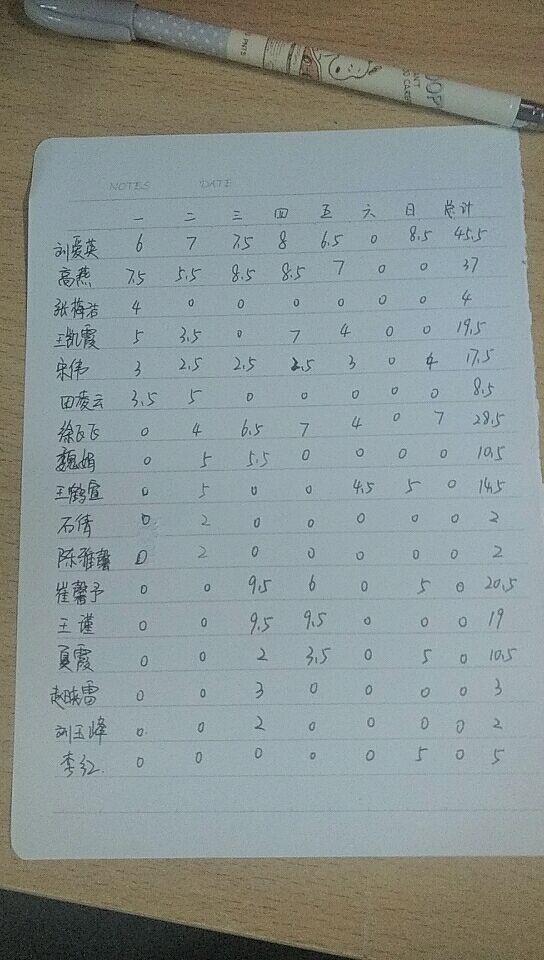 OOP
NOTES DATE
一 二 三 四 五 六 日 总计
刘爱英 6 7 7.5 8 6.5 0 8.5 45.5
高燕 7.5 5.5 8.5 8.5 7 0 0 37
张梅洁 4 0 0 0 0 0 0 4
王凯霞 5 3.5 0 7 4 0 0 19.5
宋伟 3 2.5 2.5 2.5 3 0 4 17.5
田凌云 3.5 5 0 0 0 0 0 8.5
徐飞飞 0 4 6.5 7 4 0 7 28.5
魏娟 0 5 5.5 0 0 0 0 10.5
王鹤宣 0 5 0 0 4.5 5 0 14.5
石倩 0 2 0 0 0 0 0 2
陈雅馨 0 2 0 0 0 0 0 2
崔馨予 0 0 9.5 6 0 5 0 20.5
王谨 0 0 9.5 9.5 0 0 0 19
夏霞 0 0 2 3.5 0 5 0 10.5
赵映雷 0 0 3 0 0 0 0 3
刘玉峰 0 0 2 0 0 0 0 2
李红 0 0 0 0 0 5 0 5